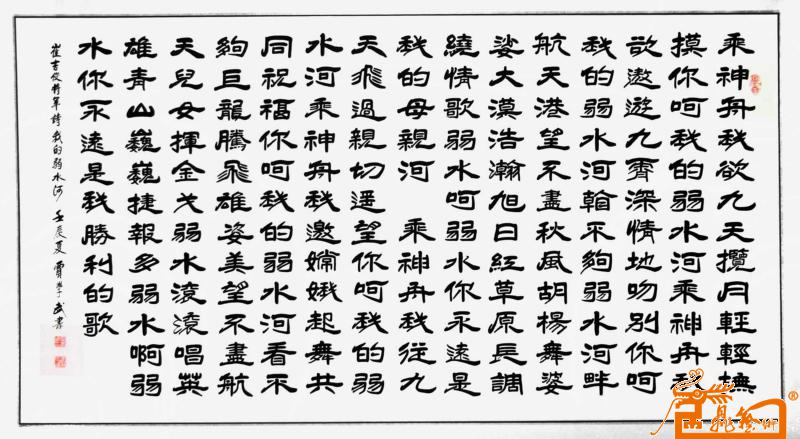 乘神舟我欲九天攬月輕輕撫
摸你呵我的弱水河乘神舟我
欲遨遊九霄深情地吻别你呵
我的弱水河翰不夠弱水河畔
航天港望不盡秋風胡楊舞婆
娑大漠浩瀚旭日紅草原長調
繞情歌弱水呵弱水你永遠是
我的母親河　乘神舟我從九
天飛過親切遥望你呵我的弱
水河乘神舟我邀嫦娥起舞共
同祝福你呵我的弱水河看不
夠巨龍騰飛雄姿美望不盡航
天兒女揮金戈弱水滚滚唱英
雄青山巍巍捷報多弱水啊弱
水你永遠是我勝利的歌
崔吉俊將軍詩我的弱水河 壬辰夏 賈學武書